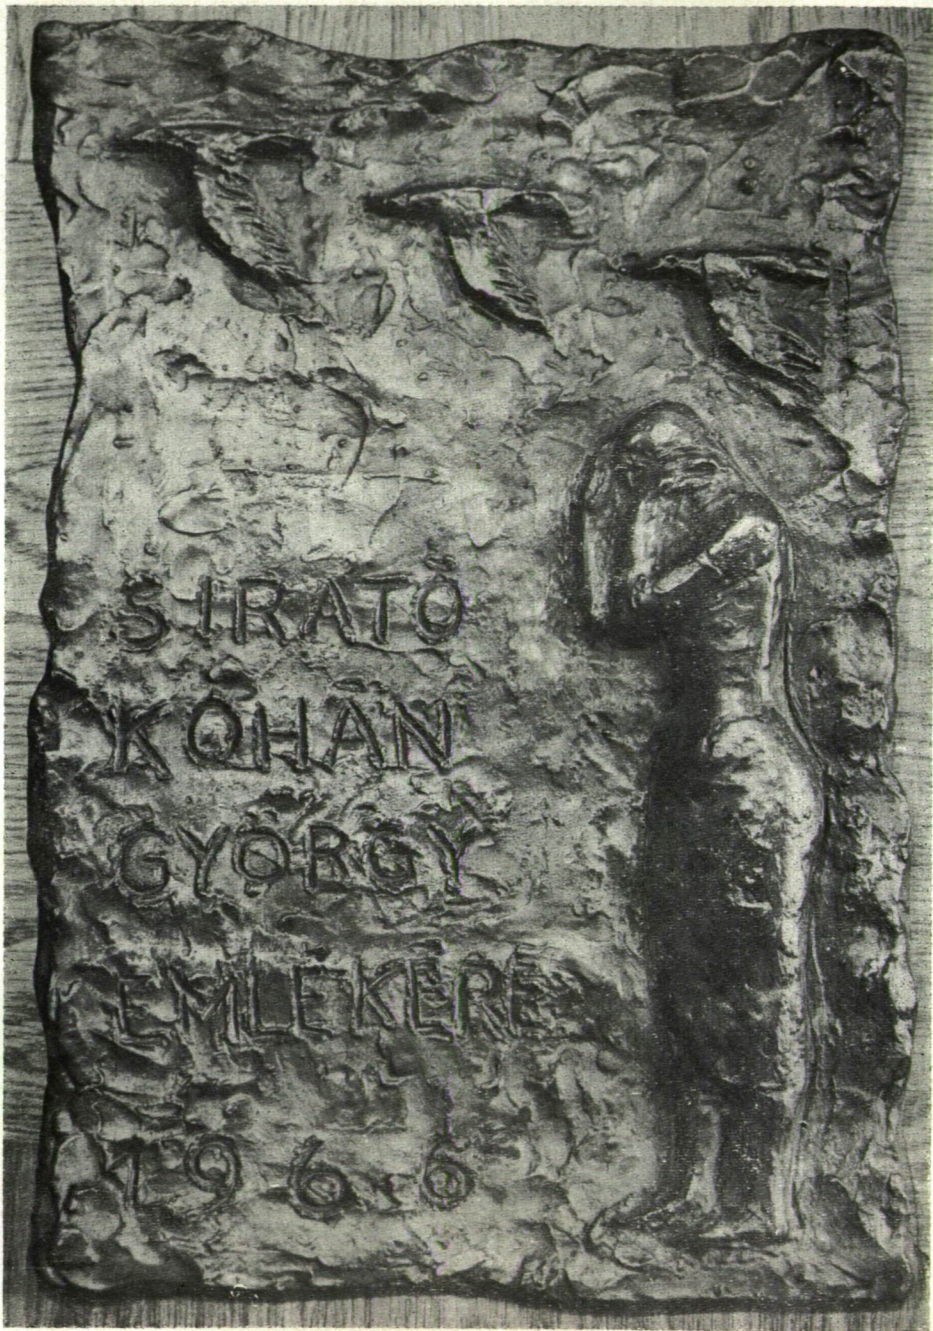 SIRATÓ
KOHÁN
GYÖRGY
EMLÉKÉRE
1966